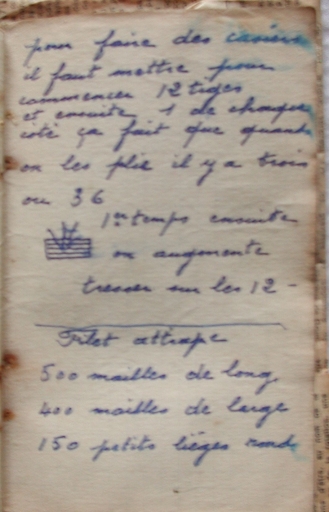 pour faire des casiers
il faut mettre pour
commencer 12 tiges
et ensuite 1 de chaque
coté ça fait que quand
on les plie il y a trois
ou 36
1er temps ensuite
on augmente
tresser sur les 12 -
Filet attrape
500 mailles de long
400 mailles de large
150 petits lièges ronds